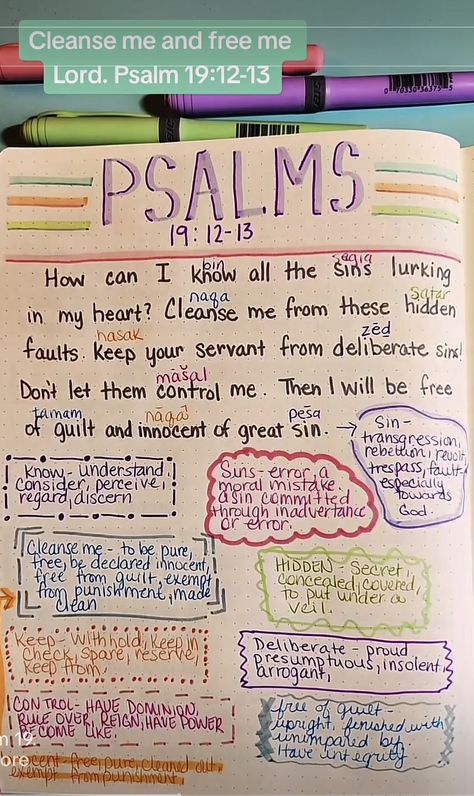 Cleanse me and free me
Lord. Psalm 19:12-13
0 70330 36375 5
PSALMS
19: 12-13
bin
sagia
How can I know all the sins lurking
naqa
satar
in my heart? Cleanse me from these hidden
hasak
zēd
faults. Keep your servant from deliberate sins!
māšal
Don't let them control me. Then I will be free
tamam
nāqâ
pesa
of guilt and innocent of great sin. →
Sin-
transgression,
rebellion, revolt,
trespass, fault-
especially
towards
God.
Know - understand
consider, perceive,
regard, discern
Sins-error, a
moral mistake.
a sin committed
through inadvertance
or error.
Cleanse me - to be pure,
free, be declared innocent,
free from guilt, exempt
from punishment, made
clean
HIDDEN - Secret,
concealed, covered,
to put under a
veil.
Keep - Withhold, Keep in
check, spare, reserve,
keep from.
Deliberate - proud
presumptuous, insolent,
arrogant,
CONTROL - HAVE DOMINION,
RULE OVER, REIGN, HAVE POWER
BECOME LIKE.
free of guilt -
upright, finished with
unimpaired by.
Have integuty
m 19:
ore
cent-free, pure, cleaned out,
exempt from punishment.